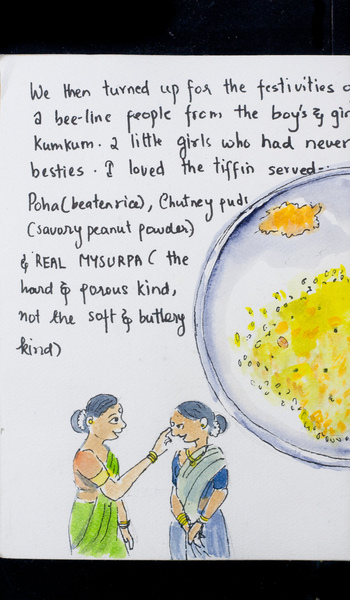 We then turned up for the festivities
a bee-line people from the boy's & 
Kumkum. 2 little girls who had never
besties. I loved the tiffin served--
Poha (beaten rice), Chutney pudi
(savory peanut powder)
& REAL MYSURPA ( the
hard & porous kind,
not the soft & buttery
kind)